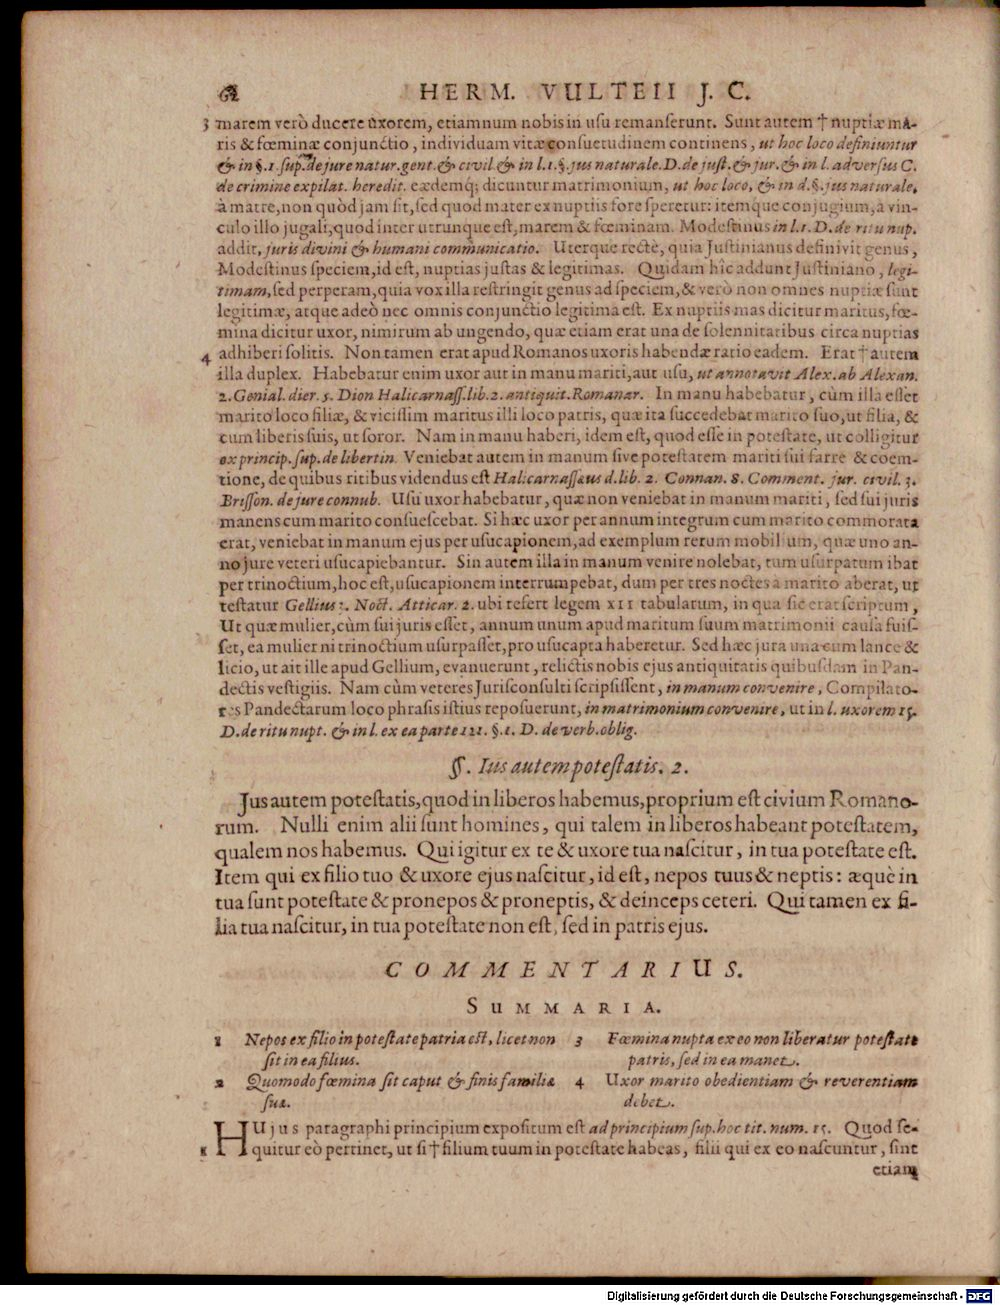 62 HERM. VULTEII J. C.
3 marem verò ducere uxorem, etiamnum nobis in usu remanserunt. Sunt autem † nuptiæ ma-
ris & fœminæ conjunctio, individuam vitæ consuetudinem continens, ut hoc loco definiuntur
& in §. 1. sup. de jure natur. gent. & civil. & in l. 1. §. jus naturale. D. de just. & jur. & in l. adversus C.
de crimine expilat. heredit. eædemq; dicuntur matrimonium, ut hoc loco, & in d. §. jus naturale,
à matre, non quòd jam sit, sed quod mater ex nuptiis fore speretur: itemque conjugium, à vin-
culo illo jugali, quod inter utrunque est, marem & fœminam. Modestinus in l. 1. D. de ritu nup.
addit, juris divini & humani communicatio. Uterque rectè, quia Justinianus definivit genus,
Modestinus speciem, id est, nuptias justas & legitimas. Quidam hîc addunt Justiniano, legi-
timam, sed perperam, quia vox illa restringit genus ad speciem, & verò non omnes nuptiæ sunt
legitimæ, atque adeò nec omnis conjunctio legitima est. Ex nuptiis mas dicitur maritus, fœ-
mina dicitur uxor, nimirum ab ungendo, quæ etiam erat una de solennitatibus circa nuptias
4 adhiberi solitis. Non tamen erat apud Romanos uxoris habendæ ratio eadem. Erat † autem
illa duplex. Habebatur enim uxor aut in manu mariti, aut usu, ut annotavit Alex. ab Alexan.
2. Genial. dier. 5. Dion Halicarnass. lib. 2. antiquit. Romanar. In manu habebatur, cùm illa esset
marito loco filiæ, & vicissim maritus illi loco patris, quæ ita succedebat marito suo, ut filia, &
cum liberis suis, ut soror. Nam in manu haberi, idem est, quod esse in potestate, ut colligitur
ex princip. sup. de libertin. Veniebat autem in manum sive potestatem mariti sui farre & coem-
tione, de quibus ritibus videndus est Halicarnassæus d. lib. 2. Connan. 8. Comment. jur. civil. 3.
Brisson. de jure connub. Usu uxor habebatur, quæ non veniebat in manum mariti, sed sui juris
manens cum marito consuescebat. Si hæc uxor per annum integrum cum marito commorata
erat, veniebat in manum ejus per usucapionem, ad exemplum rerum mobilium, quæ uno an-
no jure veteri usucapiebantur. Sin autem illa in manum venire nolebat, tum usurpatum ibat
per trinoctium, hoc est, usucapionem interrumpebat, dum per tres noctes à marito aberat, ut
testatur Gellius 3. Noct. Atticar. 2. ubi refert legem XII tabularum, in qua sic erat scriptum,
Ut quæ mulier, cùm sui juris esset, annum unum apud maritum suum matrimonii causa fuis-
set, ea mulier ni trinoctium usurpasset, pro usucapta haberetur. Sed hæc jura una cum lance &
licio, ut ait ille apud Gellium, evanuerunt, relictis nobis ejus antiquitatis quibusdam in Pan-
dectis vestigiis. Nam cùm veteres Jurisconsulti scripsissent, in manum convenire, Compilato-
res Pandectarum loco phrasis istius reposuerunt, in matrimonium convenire, ut in l. uxorem 15.
D. de ritu nupt. & in l. ex ea parte 121. §. 1. D. de verb. oblig.
§. Ius autem potestatis. 2.
Jus autem potestatis, quod in liberos habemus, proprium est civium Romano-
rum. Nulli enim alii sunt homines, qui talem in liberos habeant potestatem,
qualem nos habemus. Qui igitur ex te & uxore tua nascitur, in tua potestate est.
Item qui ex filio tuo & uxore ejus nascitur, id est, nepos tuus & neptis: æquè in
tua sunt potestate & pronepos & proneptis, & deinceps ceteri. Qui tamen ex fi-
lia tua nascitur, in tua potestate non est, sed in patris ejus.
COMMENTARIUS.
SUMMARIA.
1 Nepos ex filio in potestate patria est, licet non
sit in ea filius.
2 Quomodo fœmina sit caput & finis familiæ
suæ.
3 Fœmina nupta ex eo non liberatur potestate
patris, sed in ea manet.
4 Uxor marito obedientiam & reverentiam
debet.
HUjus paragraphi principium expositum est ad principium sup. hoc tit. num. 15. Quod se-
1 quitur eò pertinet, ut si † filium tuum in potestate habeas, filii qui ex eo nascuntur, sint
etiam
Digitalisierung gefördert durch die Deutsche Forschungsgemeinschaft - DFG